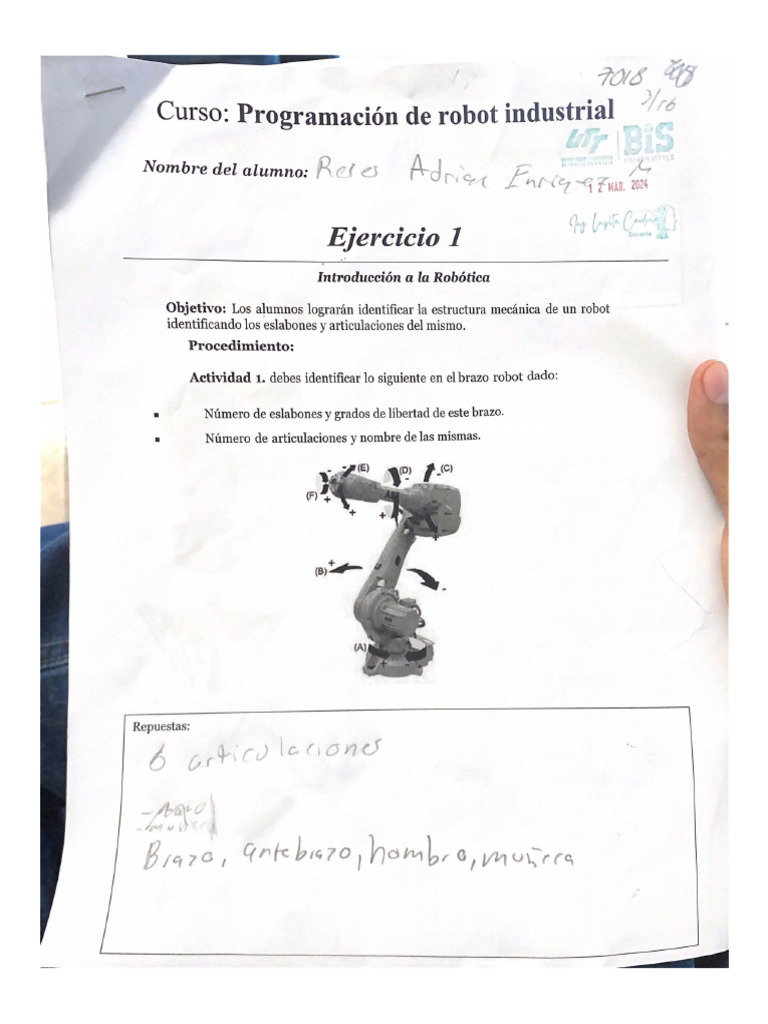 7018
3/16
Curso: Programación de robot industrial
UTT BIS
Nombre del alumno: Reyes Adrian Enriquez
12 MAR. 2024
Ing Lupita
Docente
Ejercicio 1
Introducción a la Robótica
Objetivo: Los alumnos lograrán identificar la estructura mecánica de un robot
identificando los eslabones y articulaciones del mismo.
Procedimiento:
Actividad 1. debes identificar lo siguiente en el brazo robot dado:
▪ Número de eslabones y grados de libertad de este brazo.
▪ Número de articulaciones y nombre de las mismas.
- (E) - (D) - (C)
(F) + + + +
(B) +
-
(A) + -
Repuestas:
6 articulaciones
Brazo, antebrazo, hombro, muñeca